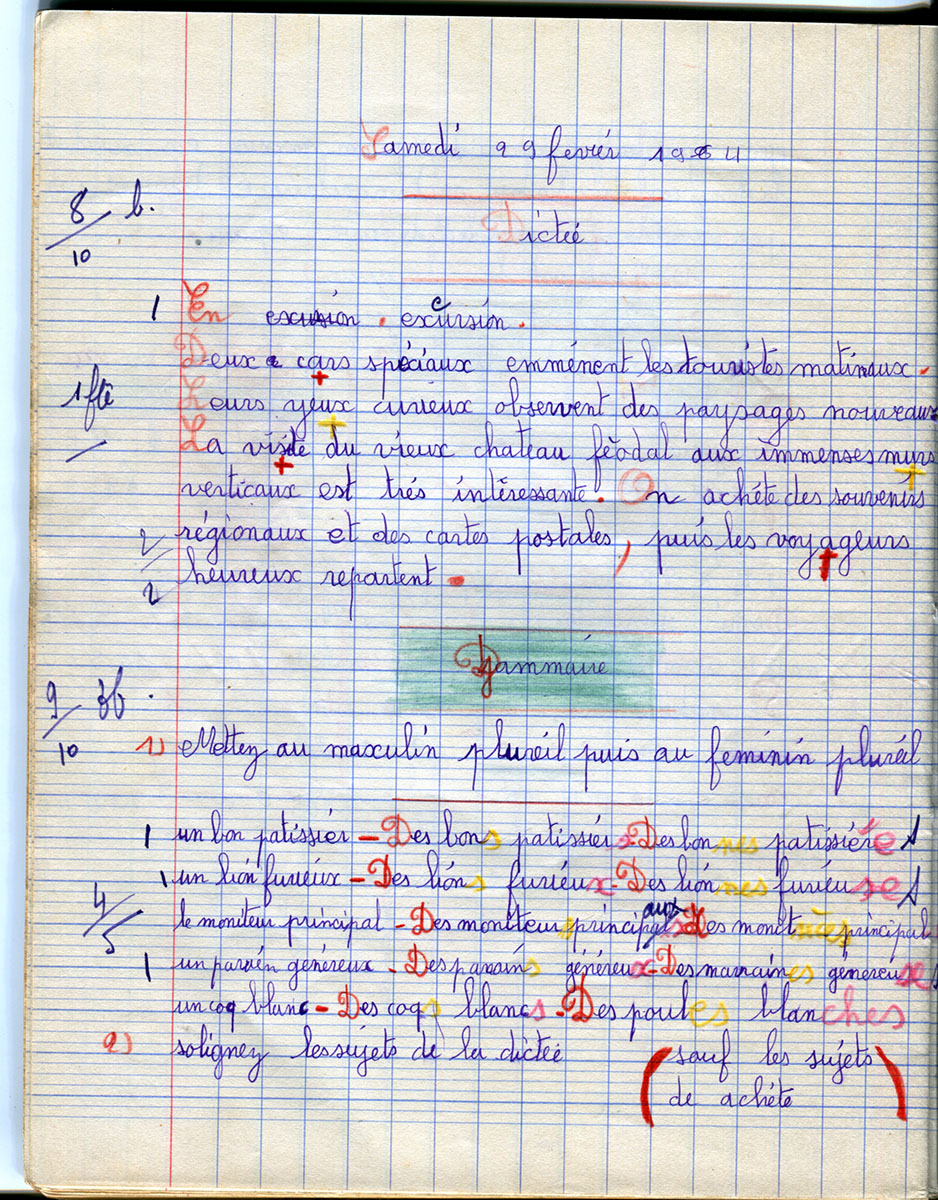 Samedi 29 fevrier 1964
8 b.
10
Dictée
1 En excusion . excursion .
Deux cars spéciaux emménent les touristes matinaux .
1 fte Leurs yeux curieux observent des paysages nouveaux
La visite du vieux chateau féodal aux immenses murs
verticaux est trés intéressante . On achéte des souvenirs
2 régionaux et des cartes postales , puis les voyageurs
2 heureux repartent .
Grammaire
9 3b .
10
1) Mettez au masculin pluréil puis au feminin pluréil
1 un bon patissiér - Des bons patissiérs - Des bonnes patissiére s
1 un lión furiéux - Des lións furiéux - Des liónnes furiéuses
4 le moniteur principal - Des moniteurs principaux Des monitrices principal
5
1 un parraín généreux - Des parraíns généreux - Des marraines généreuses
un coq blanc - Des coqs blancs - Des poules blanches
2) soligney les sujets de la dictée (sauf les sujets
de achéte)